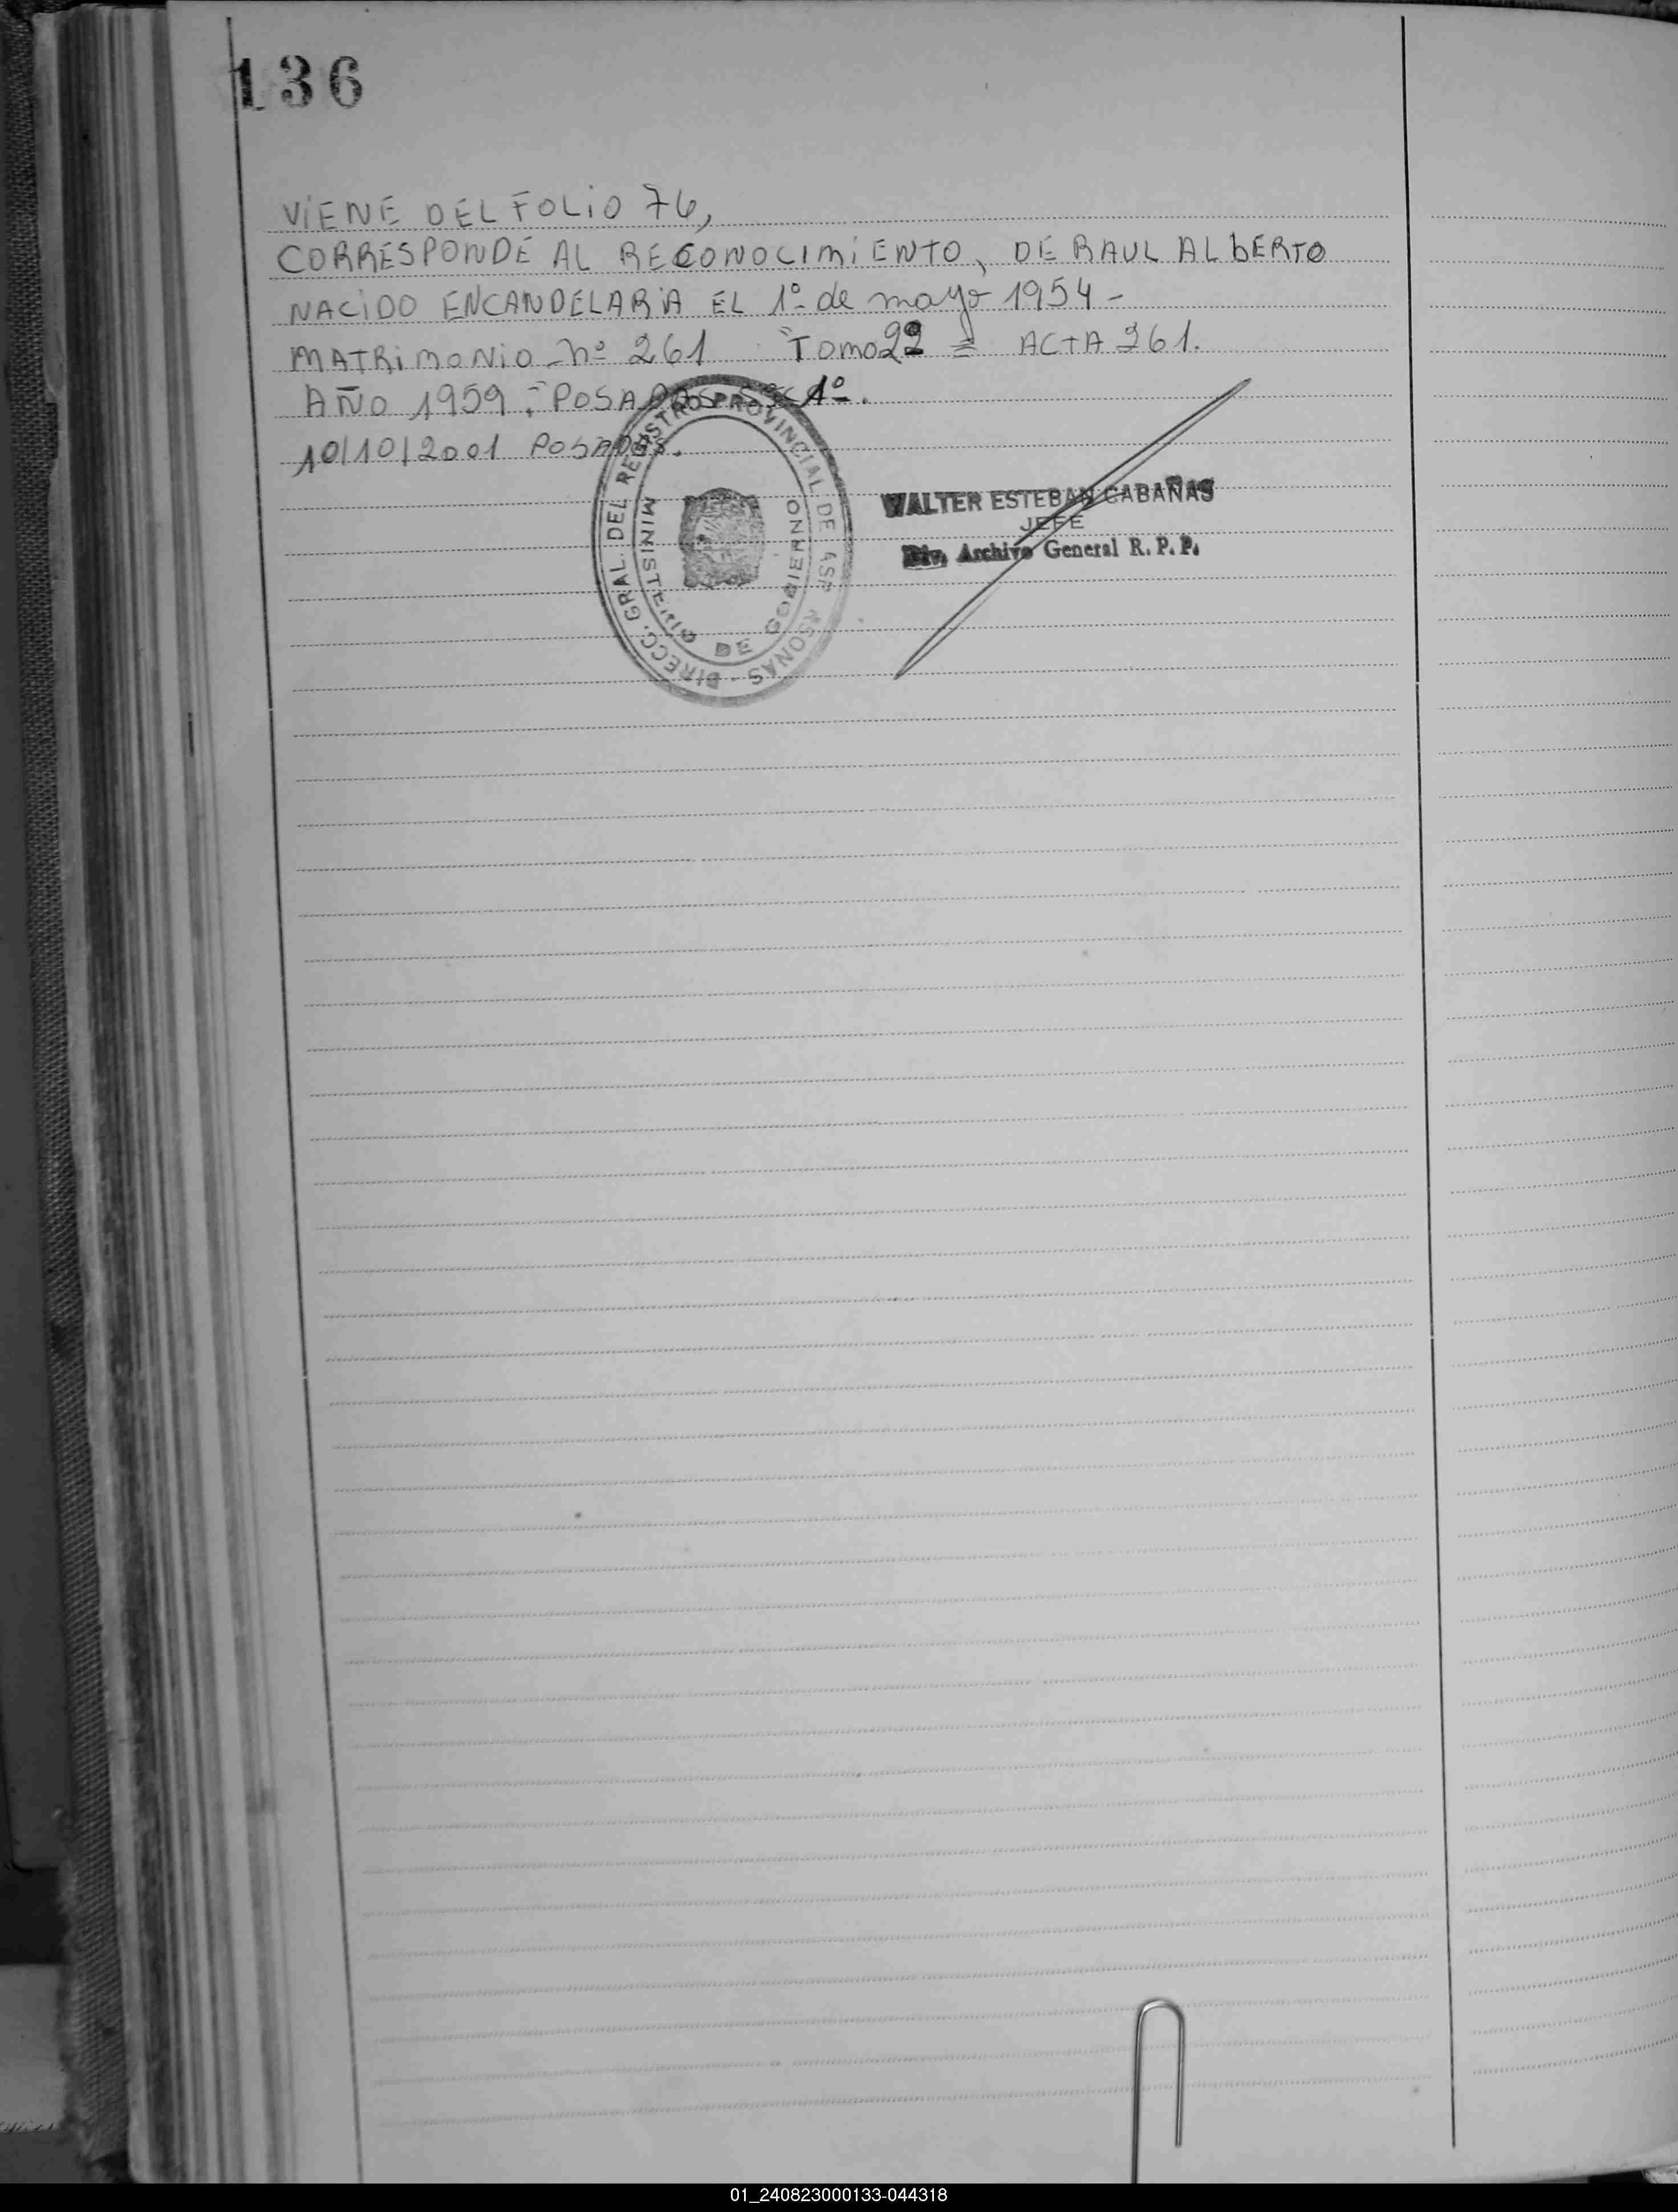 136
VIENE DEL FOLIO 76,
CORRESPONDE AL RECONOCIMIENTO, DE RAUL ALBERTO
NACIDO EN CANDELARIA EL 1º de mayo 1954 -
MATRIMONIO - Nº 261 Tomo 22 = ACTA 261.
AÑO 1959 : POSADAS SEC 1º.
10/10/2001 POSADAS.
DIRECC. GRAL. DEL REGISTRO PROVINCIAL DE
MINISTERIO DE GOBIERNO
WALTER ESTEBAN CABAÑAS
JEFE
Div. Archivo General R. P. P.
01_240823000133-044318